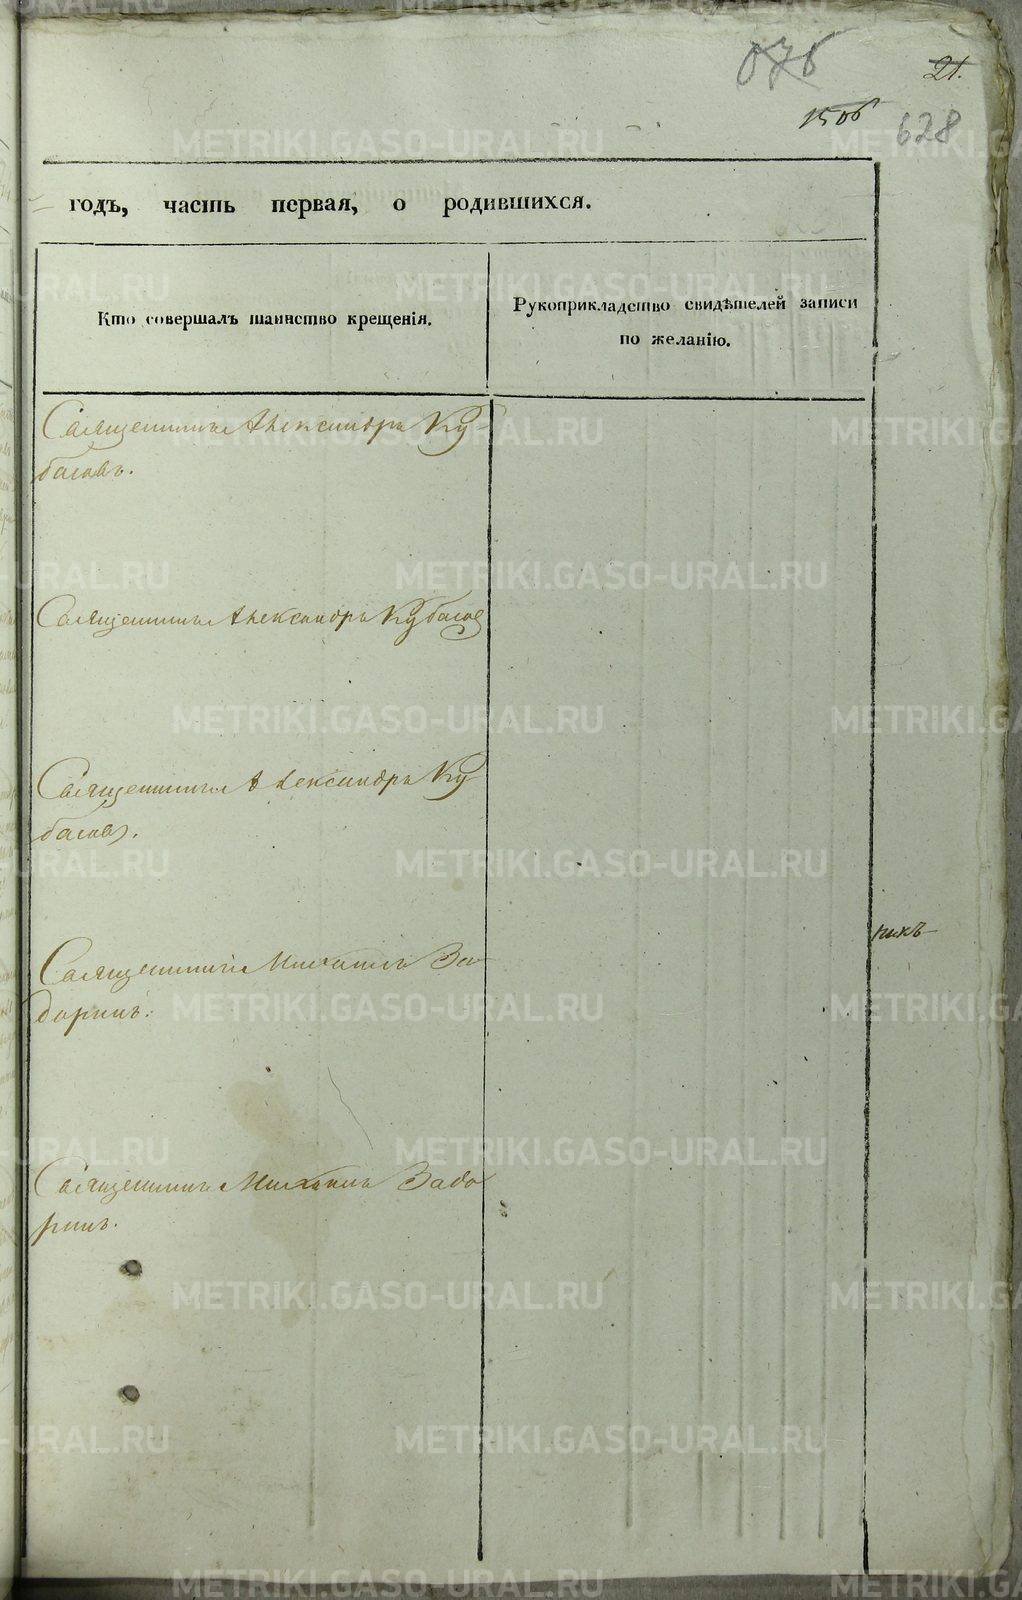 21.
628
годъ, часть первая, о родившихся.
Кто совершалъ таинство крещенія.
Рукоприкладство свидѣтелей записи
по желанію.
Священникъ Александръ Ку-
басовъ.
Священникъ Александръ Кубасов
Священникъ Александръ Ку
басовъ.
Священникъ Михаилъ За-
доринъ.
Священникъ Михаилъ Задо
ринъ.
METRIKI.GASO-URAL.RU